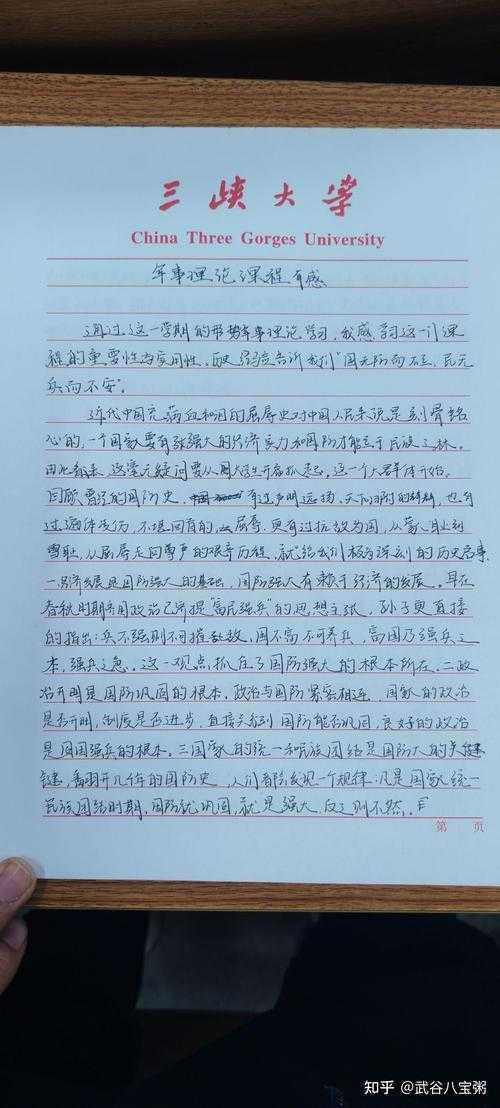 三峡大学
China Three Gorges University
军事理论课程有感
通过这一学期的形势军事理论学习,我感学习这一门课
程的重要性与实用性。历史经验告诉我们"国无防而不立,民无
兵而不安"。
近代中国充满血和泪的屈辱史对中国人民来说是刻骨铭
心的,一个国家要有强大的经济实力和国防才能立于民族之林。
由此看来,这毫无疑问要从大学生开始,这一个大群体开始。
回顾曾经的国防史,有过声明远扬、天下的辉煌,也有
过遍体疮伤、不堪回首的屈辱,更有过抗敌为国,从蒙人耻到
雪耻,从屈辱走向尊严的艰辛历程,就给我们极为深刻的历史启事
一经济发展是国防强大的基础,国防强大有赖于经济的发展。早在
春秋时期齐国政治已常提"富民强兵"的思想主张,孙子更直接
的指出:兵不强则不可摧敌,国不富不可养兵,富国乃强兵之
本,强兵之急。这一观点抓住了国防强大的根本所在。二政
治开明是国防巩固的根本,政治与国防紧密相连,国家的政治
是否开明,制度是否进步,直接关系到国防能否巩固,良好的政治
是固国强兵的根本。三国家的统一和民族团结是国防大的关键
键,翻开几千年的国防史,人们都能发现一个规律:凡是国家统一
民族团结时期,国防就巩固,就是强大,反之则不然。
第 页
知乎 @武谷八宝粥